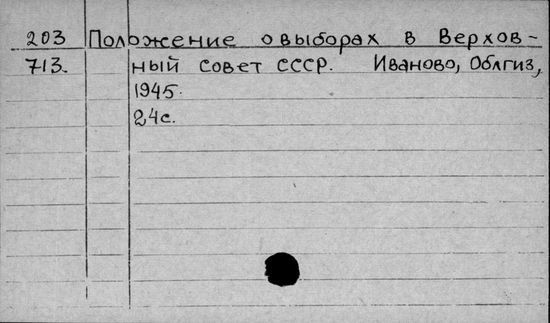 203 Положение о выборах в Верхов-
713. ный совет СССР. Иваново, Облгиз,
1945.
24с.